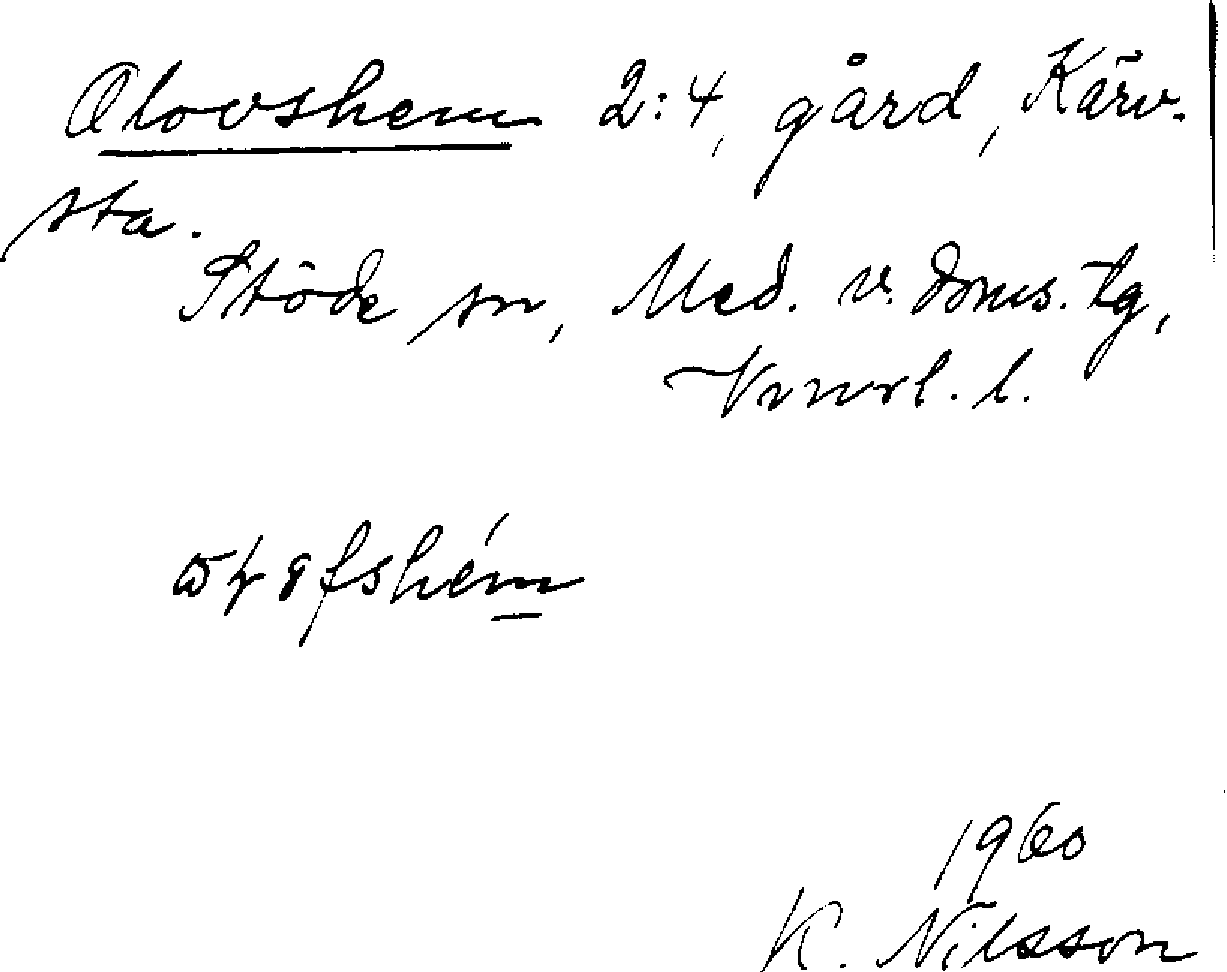 Olovshem 2:4, gård, Kärv-
sta.
Stöde sn, Med. v. doms. tg,
Vnorl. l.
1960
K. Nilsson